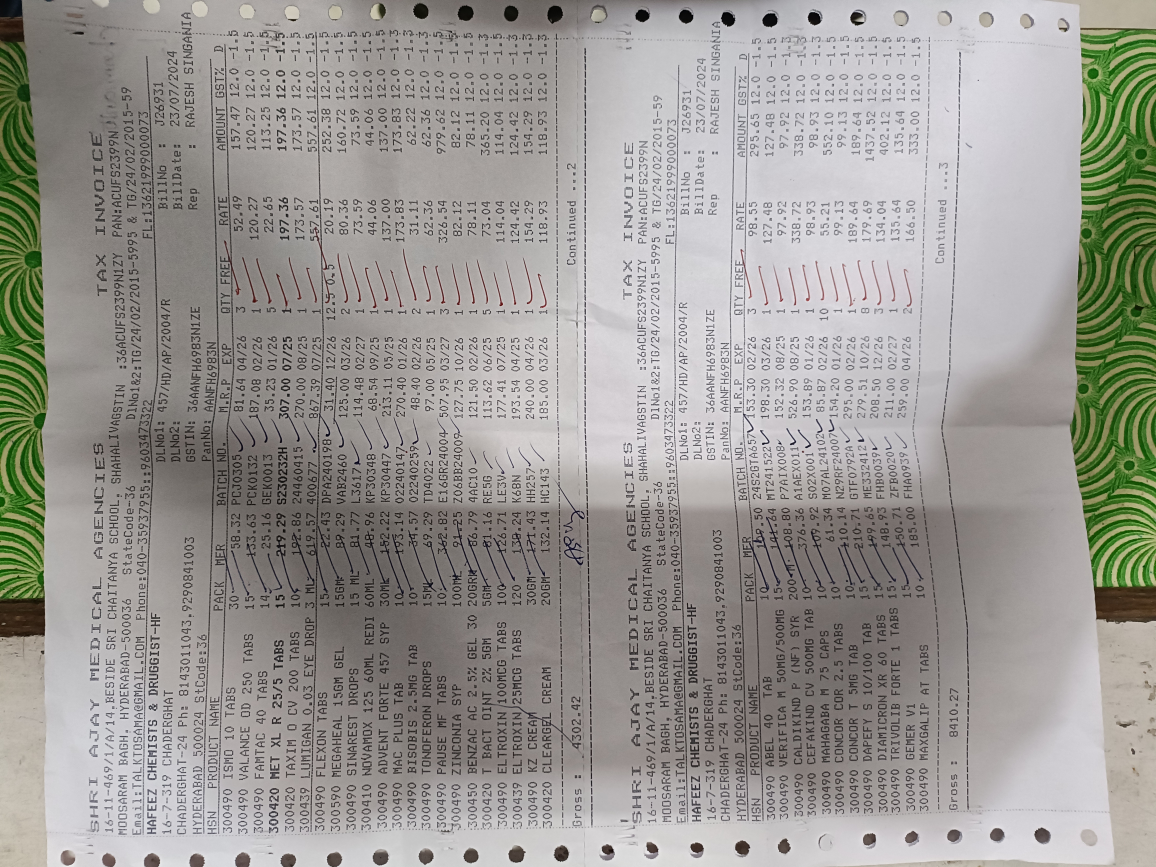 SHRI AJAY MEDICAL AGENCIES TAX INVOICE
16-11-469/1/A/14,BESIDE SRI CHAITANYA SCHOOL, SHAHALIVAGSTIN :36ACUFS2399N1ZY PAN:ACUFS2399N
MOOSARAM BAGH, HYDERABAD-500036 StateCode-36 DlNo1&2:TG/24/02/2015-5995 & TG/24/02/2015-59
Email:TALKTOSAMA@GMAIL.COM Phone:040-35937955::9603473322 FL:13621999000073
HAFEEZ CHEMISTS & DRUGGIST-HF DLNo1: 457/HD/AP/2004/R BillNo : J26931
16-7-319 CHADERGHAT DLNo2: BillDate: 23/07/2024
CHADERGHAT-24 Ph: 8143011043,9290841003 GSTIN: 36AANFH6983N1ZE Rep : RAJESH SINGANIA
HYDERABAD 500024 StCode:36 PanNo: AANFH6983N
HSN PRODUCT NAME PACK MER BATCH NO. M.R.P EXP QTY FREE RATE AMOUNT GST% D
300490 ISMO 10 TABS 30 58.32 PCJ0305 81.64 04/26 3 52.49 157.47 12.0 -1.5
300490 VALANCE OD 250 TABS 15 133.63 PCK0132 187.08 02/26 1 120.27 120.27 12.0 -1.5
300490 FAMTAC 40 TABS 14 25.16 GEK0013 35.23 01/26 5 22.65 113.25 12.0 -1.5
300420 MET XL R 25/5 TABS 15 219.29 S230232H 307.00 07/25 1 197.36 197.36 12.0 -1.5
300420 TAXIM O CV 200 TABS 10 192.86 24460415 270.00 08/25 1 173.57 173.57 12.0 -1.5
300439 LUMIGAN 0.03 EYE DROP 3 ML 619.57 A00677 867.39 07/25 1 557.61 557.61 12.0 -1.5
300490 FLEXON TABS 15 22.43 DPA240198 31.40 12/26 12.5 0.5 20.19 252.38 12.0 -1.5
300590 MEGAHEAL 15GM GEL 15GM 89.29 VAB2460 125.00 03/26 2 80.36 160.72 12.0 -1.5
300490 SINAREST DROPS 15 ML 81.77 L3617 114.48 02/27 1 73.59 73.59 12.0 -1.5
300410 NOVAMOX 125 60ML REDI 60ML 48.96 KP30348 68.54 09/25 1 44.06 44.06 12.0 -1.5
300490 ADVENT FORTE 457 SYP 30ML 152.22 KP30447 213.11 05/25 1 137.00 137.00 12.0 -1.5
300490 MAC PLUS TAB 10 193.14 02240147 270.40 01/26 1 173.83 173.83 12.0 -1.3
300490 BISOBIS 2.5MG TAB 10 34.57 02240259 48.40 02/26 2 31.11 62.22 12.0 -1.5
300490 TONOFERON DROPS 15ML 69.29 TD4022 97.00 05/25 1 62.36 62.36 12.0 -1.3
300490 PAUSE MF TABS 10 362.82 E16BR24004 507.95 03/27 3 326.54 979.62 12.0 -1.5
300490 ZINCONIA SYP 100ML 91.25 Z06BB24009 127.75 10/26 1 82.12 82.12 12.0 -1.5
300450 BENZAC AC 2.5% GEL 30 20GRM 86.79 4AC10 121.50 02/26 1 78.11 78.11 12.0 -1.5
300420 T BACT OINT 2% 5GM 5GM 81.16 RE5G 113.62 06/25 5 73.04 365.20 12.0 -1.5
300490 ELTROXIN/100MCG TABS 100 126.71 LE3V 177.41 07/25 1 114.04 114.04 12.0 -1.5
300439 ELTROXIN/25MCG TABS 120 138.24 K6BN 193.54 04/25 1 124.42 124.42 12.0 -1.3
300490 KZ CREAM 30GM 171.43 HH257 240.00 03/26 1 154.29 154.29 12.0 -1.5
300420 CLEARGEL CREAM 20GM 132.14 HC143 185.00 03/26 1 118.93 118.93 12.0 -1.3
Gross : 4302.42 Continued ...2
SHRI AJAY MEDICAL AGENCIES TAX INVOICE
16-11-469/1/A/14,BESIDE SRI CHAITANYA SCHOOL, SHAHALIVAGSTIN :36ACUFS2399N1ZY PAN:ACUFS2399N
MOOSARAM BAGH, HYDERABAD-500036 StateCode-36 DlNo1&2:TG/24/02/2015-5995 & TG/24/02/2015-59
Email:TALKTOSAMA@GMAIL.COM Phone:040-35937955::9603473322 FL:13621999000073
HAFEEZ CHEMISTS & DRUGGIST-HF DLNo1: 457/HD/AP/2004/R BillNo : J26931
16-7-319 CHADERGHAT DLNo2: BillDate: 23/07/2024
CHADERGHAT-24 Ph: 8143011043,9290841003 GSTIN: 36AANFH6983N1ZE Rep : RAJESH SINGANIA
HYDERABAD 500024 StCode:36 PanNo: AANFH6983N
HSN PRODUCT NAME PACK MER BATCH NO. M.R.P EXP QTY FREE RATE AMOUNT GST% D
300490 ABEL 40 TAB 10 109.50 24S2GTA657 153.30 02/26 3 98.55 295.65 12.0 -1.5
300490 VERIFICA M 50MG/500MG 15 141.64 MT241522 198.30 03/26 1 127.48 127.48 12.0 -1.5
300490 CALDIKIND P (NF) SYR 200 M 108.80 M7AIX008 152.32 08/25 1 97.92 97.92 12.0 -1.3
300490 CEFAKIND CV 500MG TAB 10 376.36 A1AEX011 526.90 08/25 1 338.72 338.72 12.0 -1.5
300490 MAHAGABA M 75 CAPS 10 109.92 SA02X001 153.89 01/26 1 98.93 98.93 12.0 -1.3
300490 CONCOR COR 2.5 TABS 10 61.34 M07AL2402 85.87 02/26 10 55.21 552.10 12.0 -1.5
300490 CONCOR T 5MG TAB 10 110.14 N29RF24007 154.20 01/26 1 99.13 99.13 12.0 -1.5
300490 DAPEFY S 10/100 TAB 10 210.71 GTF0792A 295.00 02/26 1 189.64 189.64 12.0 -1.5
300490 DIAMICRON XR 60 TABS 15 199.65 ME332412 279.51 10/26 8 179.69 1437.52 12.0 -1.5
300490 TRIVOLIB FORTE 1 TABS 15 148.93 FHB0039 208.50 12/26 3 134.04 402.12 12.0 -1.5
300490 GEMER V1 15 150.71 ZFB0020 211.00 02/27 1 135.64 135.64 12.0 -1.5
300490 MAXGALIP AT TABS 10 185.00 FHA0939 259.00 04/26 2 166.50 333.00 12.0 -1.5
Gross : 8410.27 Continued ...3